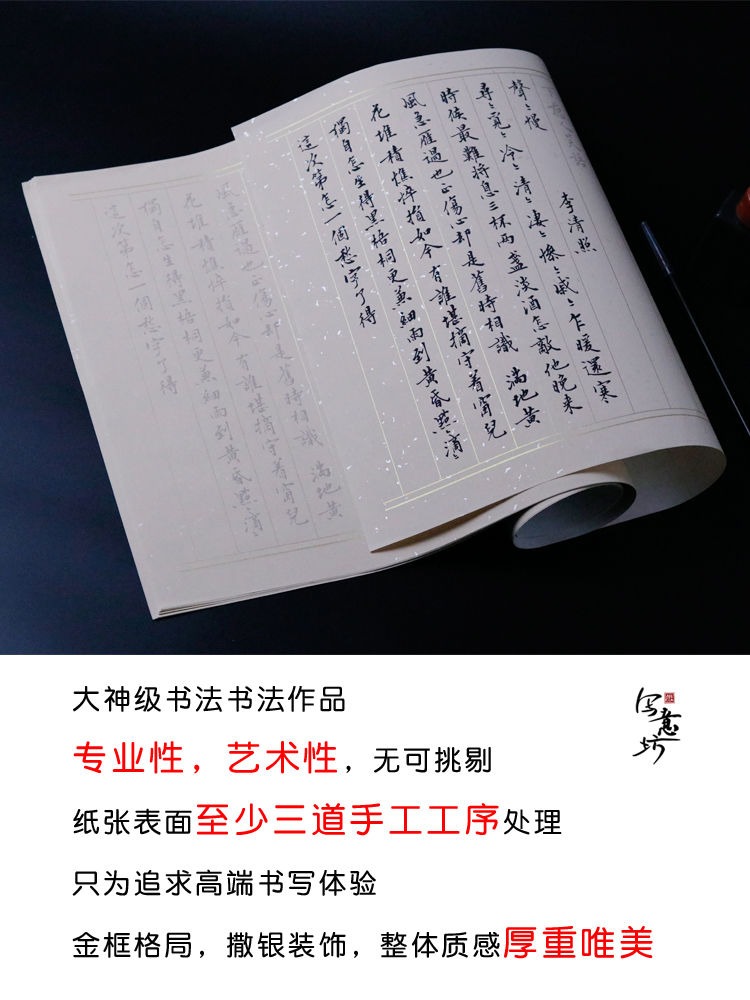 聲〻慢 李清照
尋〻覓〻冷〻清〻凄〻慘〻戚〻乍暖還寒
時候最難將息三杯兩盞淡酒怎敵他晚来
風急雁過也正傷心却是舊時相識 滿地黄
花堆積憔悴損如今有誰堪摘守着窗兒
獨自怎生得黑梧桐更兼細雨到黄昏點〻滴〻
這次第怎一個愁字了得
風急雁過也正傷心却是舊時相識 滿地黄
花堆積憔悴損如今有誰堪摘守着窗兒
獨自怎生得黑梧桐更兼細雨到黄昏點〻滴〻
這次第怎一個愁字了得
大神级书法书法作品
专业性，艺术性，无可挑剔
纸张表面至少三道手工工序处理
只为追求高端书写体验
金框格局，撒银装饰，整体质感厚重唯美
写意坊